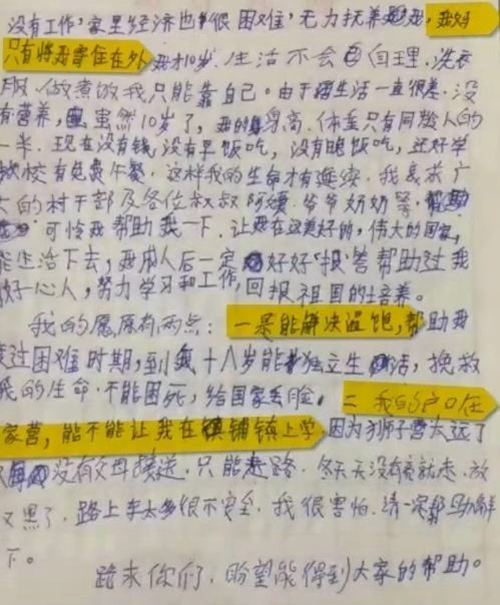 没有工作，家里经济也很困难，无力抚养我，
只有将我寄住在外 我才10岁，生活不会自理，洗衣
服，做煮饭我只能靠自己。由于生活一直很差，没
有营养，虽然10岁了，我的身高、体重只有同龄人的
一半，现在没有钱，没有早饭吃，没有晚饭吃，还好学
校有免费午餐，这样我的生命才有延续，我恳求广
大的村干部及各位叔叔阿姨，爷爷奶奶等，
可怜我帮助我一下，让我在这美好的，伟大的国家，
能生活下去，我成人后一定好好报答帮助过我
好心人，努力学习和工作，回报祖国的培养。
我的愿原有两点：一是能解决温饱，帮助我
渡过困难时期，到我十八岁能独立生活，挽救
我的生命，不能困死，给国家丢脸。二 我的户口在
家营，能不能让我在镇铺镇上学，因为狮子营太远了
没有父母接送，只能走路，冬天天没有亮就走，放
又黑了，路上车太多很不安全，我很害怕，请帮助解
下。
跪求你们，盼望能得到大家的帮助。